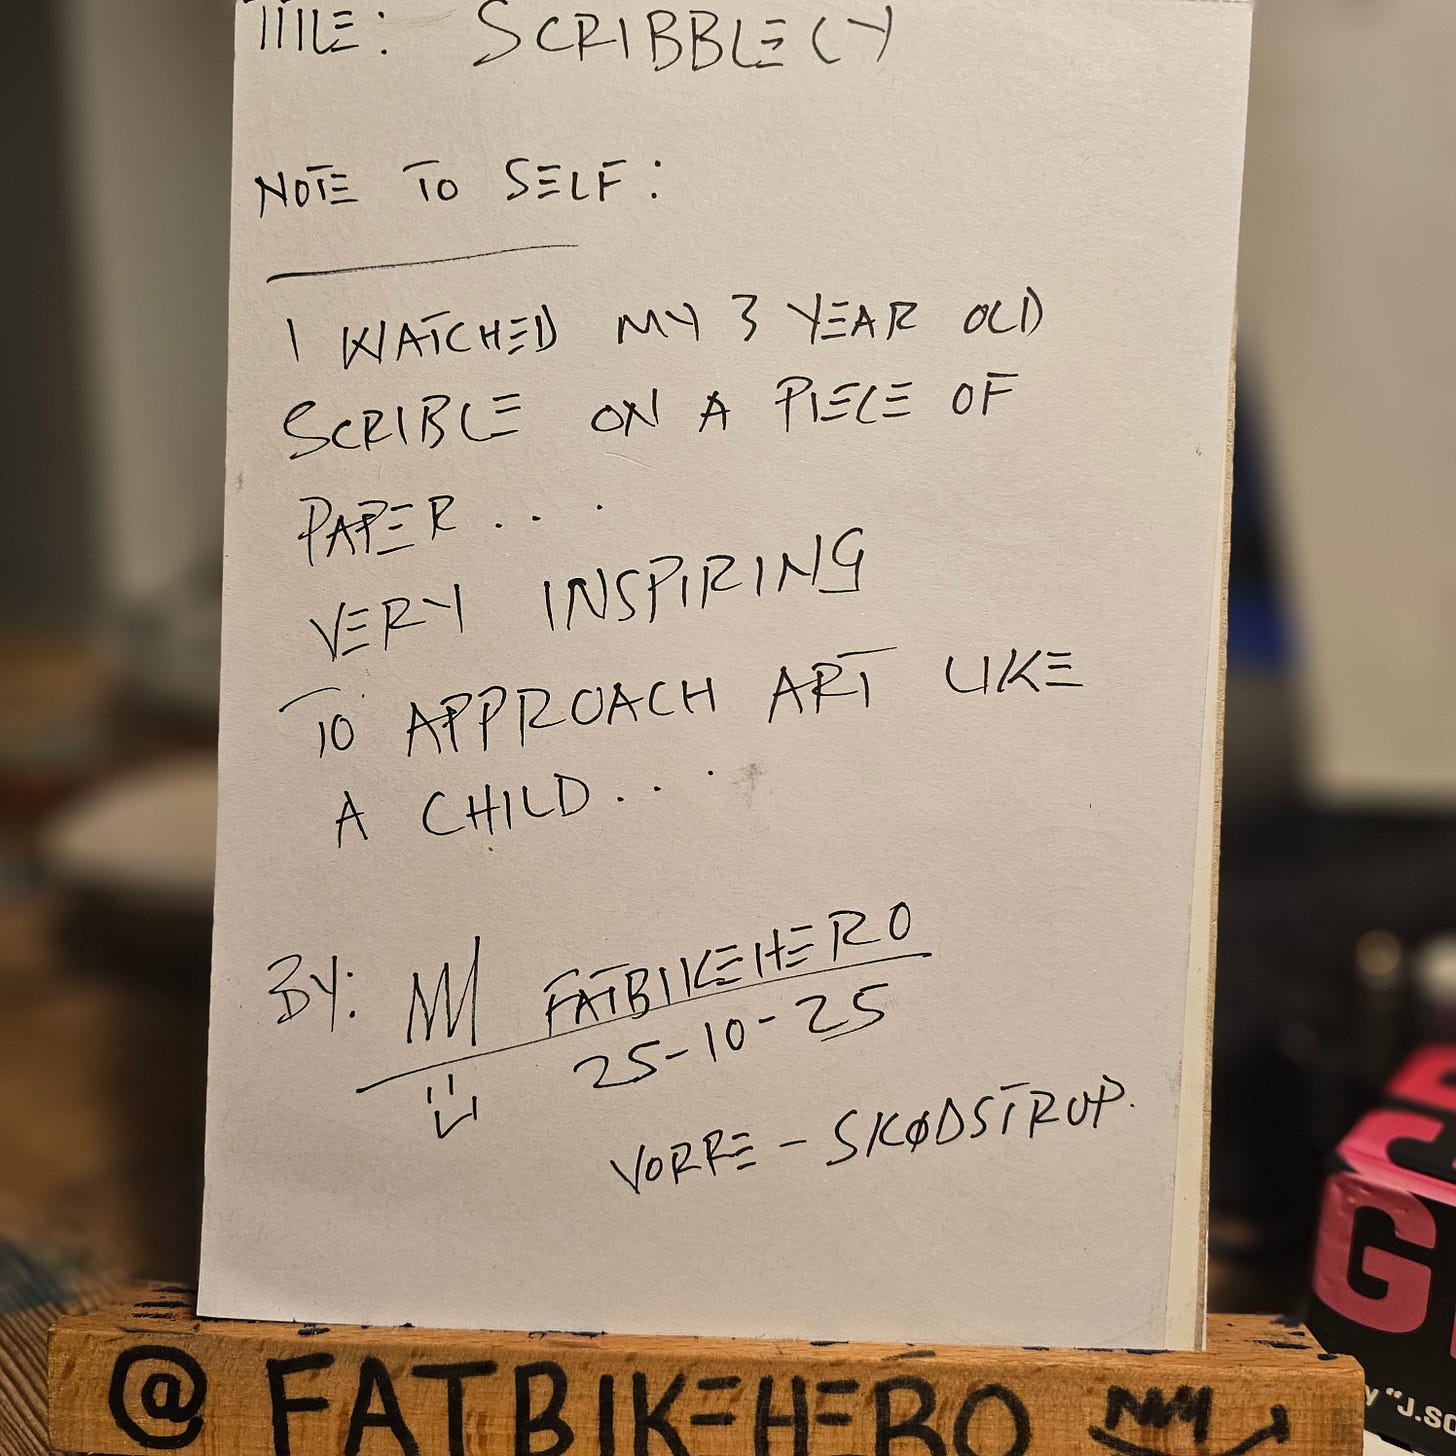 TITLE: SCRIBBLELY
NOTE TO SELF:
I WATCHED MY 3 YEAR OLD
SCRIBLE ON A PIECE OF
PAPER...
VERY INSPIRING
TO APPROACH ART LIKE
A CHILD...
BY: FATBIKEHERO
25-10-25
VORRE - SKØDSTRUP.
@FATBIKEHERO
G
"J.SC